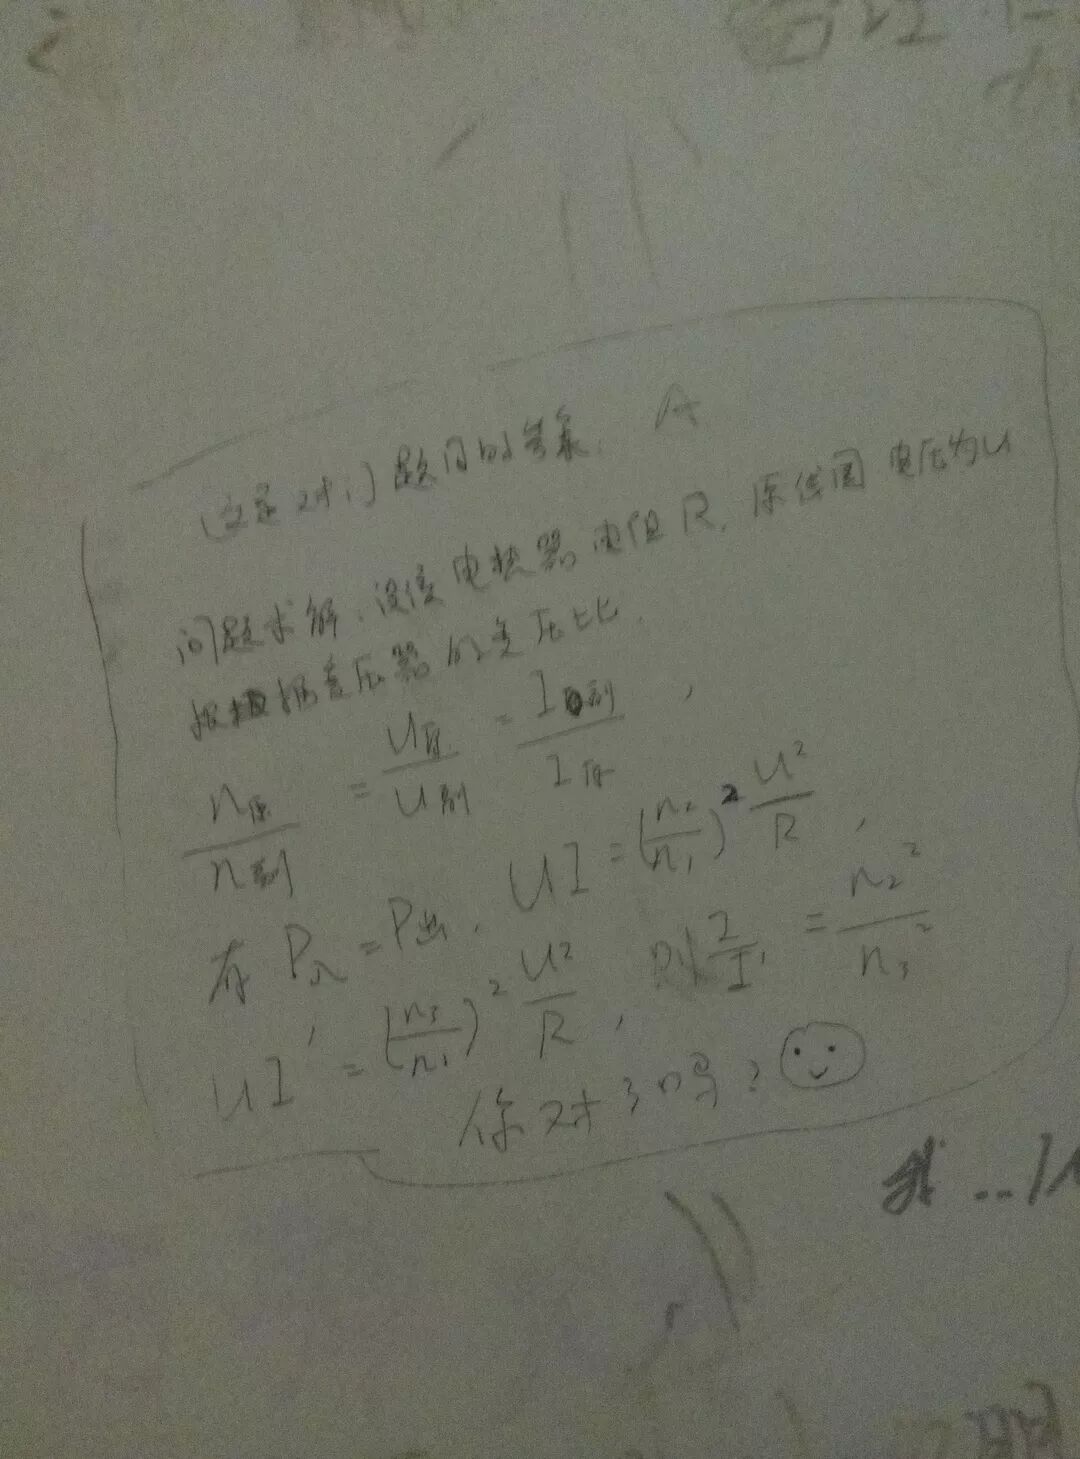 这是对门题目的答案. A
问题求解, 设该电热器电阻R, 原线圈电压为U
根据变压器的变压比,
n原/n副 = U原/U副 = I副/I原 ,
有 P入 = P出, UI = (n₂/n₁)² U²/R ,
UI' = (n₃/n₁)² U²/R , 则 I/I' = n₂²/n₃²
你对了吗?
我...